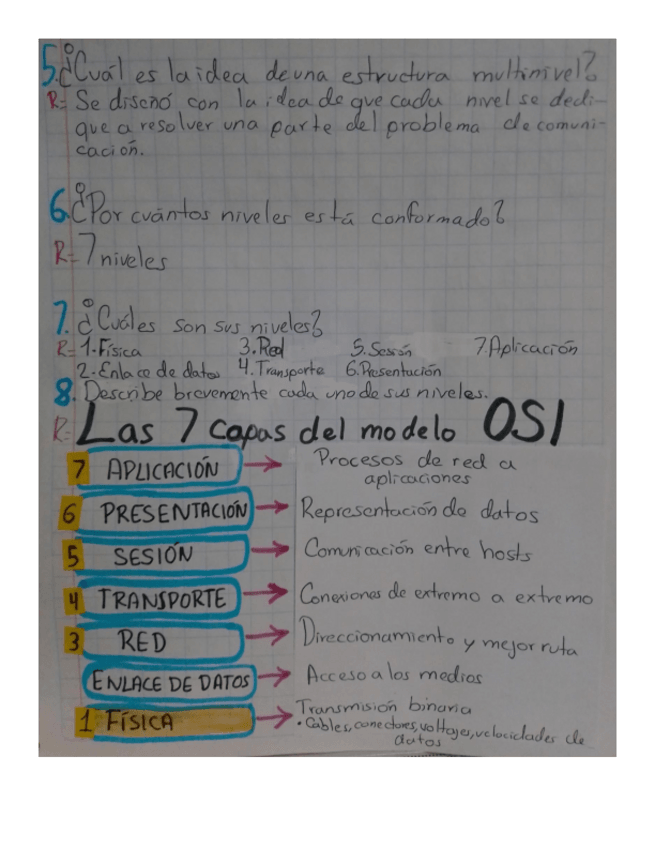 5. ¿Cuál es la idea de una estructura multinivel?
R= Se diseñó con la idea de que cada nivel se dedi-
que a resolver una parte del problema de comuni-
cación.
6. ¿Por cuántos niveles está conformado?
R= 7 niveles
7. ¿Cuáles son sus niveles?
R= 1. Física 3. Red 5. Sesión 7. Aplicación
2. Enlace de datos 4. Transporte 6. Presentación
8. Describe brevemente cada uno de sus niveles.
R= Las 7 capas del modelo OSI
7 APLICACIÓN → Procesos de red a
aplicaciones
6 PRESENTACIÓN → Representación de datos
5 SESIÓN → Comunicación entre hosts
4 TRANSPORTE → Conexiones de extremo a extremo
3 RED → Direccionamiento y mejor ruta
ENLACE DE DATOS → Acceso a los medios
1 FÍSICA → Transmisión binaria
• Cables, conectores, voltajes, velocidades de
datos